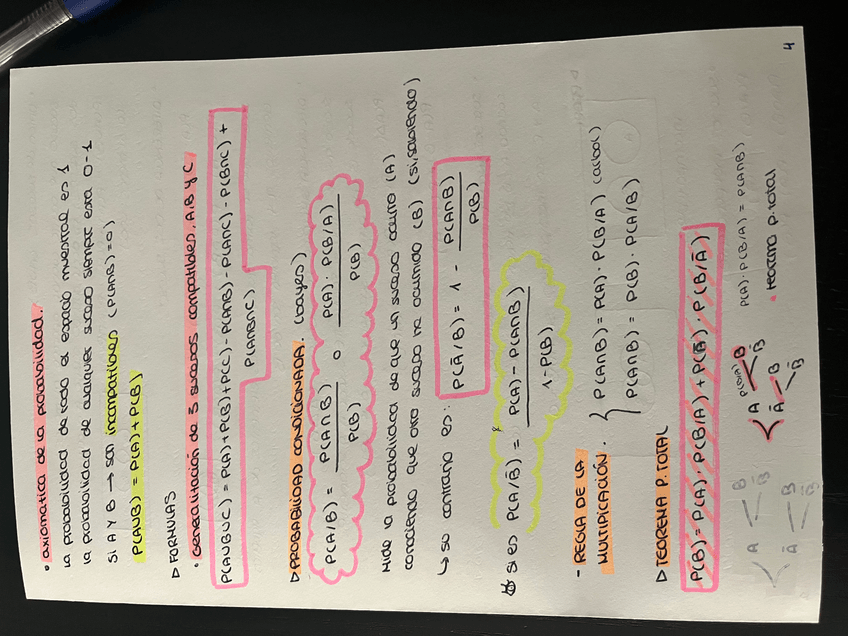 • axiomática de la probabilidad.
la probabilidad de todo el espacio muestral es 1
la probabilidad de cualquier suceso siempre esta 0-1
Si A y B → son incompatibles (P(A∩B)=0)
P(A∪B) = P(A)+P(B)
▷ FORMULAS
• Generalización de 3 sucesos compatibles, A, B y C
P(A∪B∪C) = P(A)+P(B)+P(C)-P(A∩B)-P(A∩C)-P(B∩C)+
P(A∩B∩C)
▷ PROBABILIDAD CONDICIONADA. (bayes)
P(A/B) = P(A∩B) / P(B) o P(A)·P(B/A) / P(B)
Mide la probabilidad de que un suceso ocurra (A)
conociendo que otro suceso ha ocurrido (B) (si, sabiendo)
↳ su contrario es: P(Ā/B) = 1 - P(A∩B) / P(B)
si es P(A/B̄) = P(A)-P(A∩B) / 1-P(B)
- REGLA DE LA
MULTIPLICACIÓN. { P(A∩B)=P(A)·P(B/A) (arbol)
P(A∩B) = P(B)·P(A/B)
▷ TEOREMA P. TOTAL
P(B)=P(A)·P(B/A)+P(Ā)·P(B/Ā)
A B B̄
Ā B B̄
A P(B/A) B B̄ P(A)·P(B/A)=P(A∩B)
Ā B B̄ • teorema p. total
4